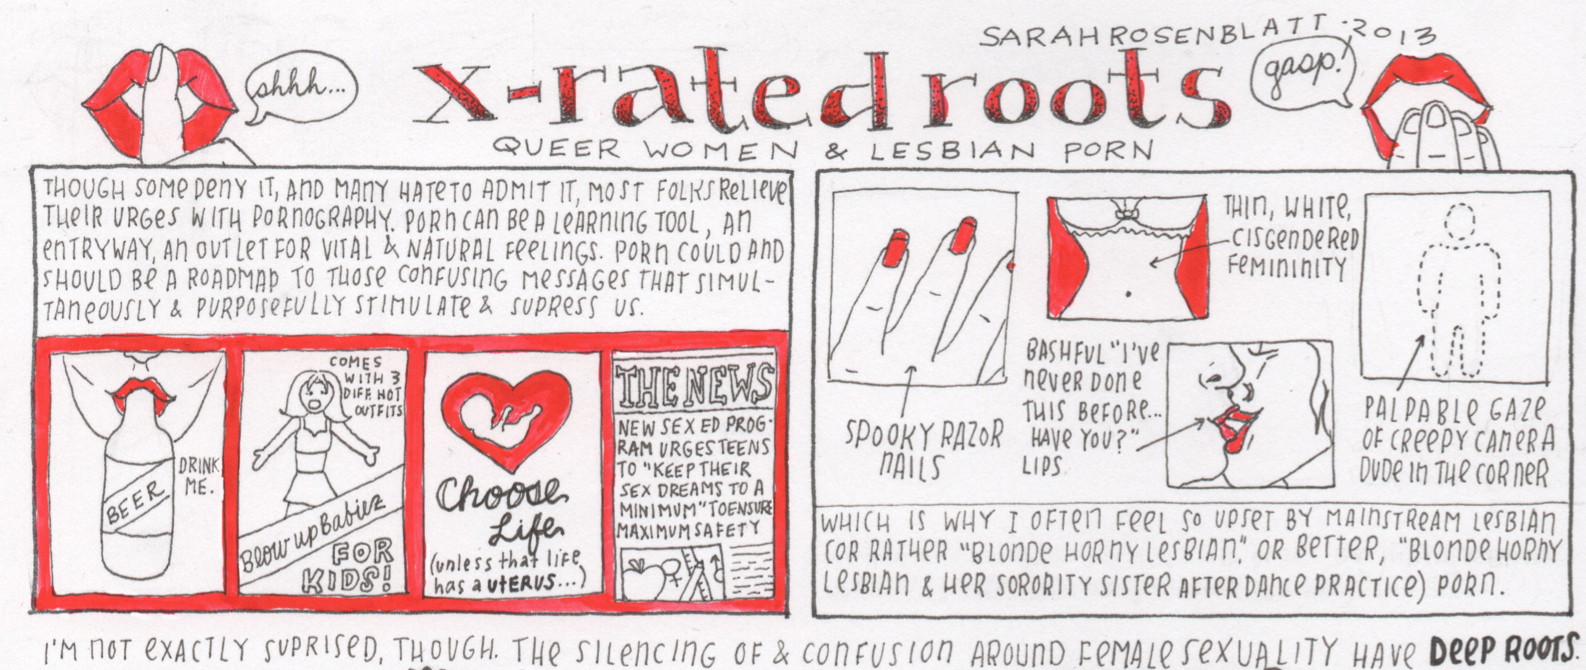 SARAH ROSENBLATT · 2013
shhh...
x-rated roots
gasp!
QUEER WOMEN & LESBIAN PORN
THOUGH SOME DENY IT, AND MANY HATE TO ADMIT IT, MOST FOLKS RELIEVE
THEIR URGES WITH PORNOGRAPHY. PORN CAN BE A LEARNING TOOL, AN
ENTRYWAY, AN OUTLET FOR VITAL & NATURAL FEELINGS. PORN COULD AND
SHOULD BE A ROADMAP TO THOSE CONFUSING MESSAGES THAT SIMUL-
TANEOUSLY & PURPOSEFULLY STIMULATE & SUPRESS US.
BEER
DRINK
ME.
COMES
WITH 3
DIFF. HOT
OUTFITS
Blow up Babiez
FOR
KIDS!
Choose
Life
(unless that life
has a UTERUS...)
THE NEWS
NEW SEX ED PROG-
RAM URGES TEENS
TO "KEEP THEIR
SEX DREAMS TO A
MINIMUM" TO ENSURE
MAXIMUM SAFETY
SPOOKY RAZOR
NAILS
THIN, WHITE,
CISGENDERED
FEMININITY
BASHFUL "I'VE
NEVER DONE
THIS BEFORE...
HAVE YOU?"
LIPS
PALPABLE GAZE
OF CREEPY CAMERA
DUDE IN THE CORNER
WHICH IS WHY I OFTEN FEEL SO UPSET BY MAINSTREAM LESBIAN
(OR RATHER "BLONDE HORNY LESBIAN," OR BETTER, "BLONDE HORNY
LESBIAN & HER SORORITY SISTER AFTER DANCE PRACTICE) PORN.
I'M NOT EXACTLY SUPRISED, THOUGH. THE SILENCING OF & CONFUSION AROUND FEMALE SEXUALITY HAVE DEEP ROOTS.